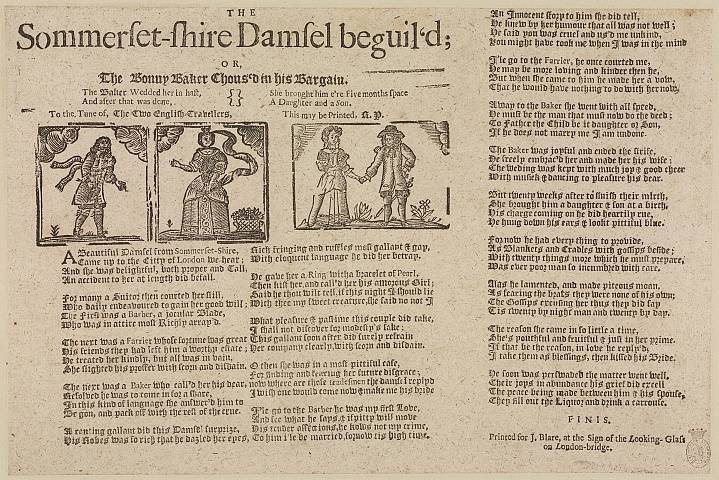 THE
Sommerset-shire Damsel beguil'd;
OR,
The Bonny Baker Chous'd in his Bargain.
The Baker Wedded her in hast,
And after that was done,
She brought him e're Five months space
A Daughter and a Son.
To the Tune of, The Two English-Travellers,
This may be Printed, R. P.
A Beautiful Damsel from Sommerset-Shire,
Came up to the Citty of London we hear;
And she was delightful, both proper and Tall,
An accident to her at length did befall.
For many a Suitor then courted her still,
Who daily endeavoured to gain her good will;
The First was a Barber, a jocular Blade,
Who was in attire most Richly array'd.
The next was a Farrier whose fortune was great
His friends they had left him a worthy estate;
He treated her kindly, but all was in vain,
She slighted his proffer with scorn and disdain.
The next was a Baker who call'd her his dear,
Resolved he was to come in for a share,
In this kind of language she answer'd him to
Be gon, and pack off with the rest of the crue.
A ranting gallant did this Damsel surprize,
His Robes was so rich that he dazled her eyes,
Rich fringing and ruffles most gallant & gay,
With eloquent language he did her betray.
He gave her a Ring with a bracelet of Pearl,
Then kist her, and call'd her his amorous Girl;
Said he thou wilt tell, if this night I should lie
With thee my sweet creature, she said no not I
What pleasure & pastime this couple did take,
I shall not discover for modesty's sake;
This gallant soon after did surely refrain
Her company clearly with scorn and disdain.
O then she was in a most pittiful case,
For finding and fearing her future disgrace;
now where are those tradesmen the damsel reply'd
I wish one would come now & make me his bride
I'le go to the Barber he was my first Love,
And see what he says, if pitty will move
His tender affections, he kows not my crime,
To him i'le be married, for now tis high time.
An Innocent story to him she did tell,
He knew by her humour that all was not well;
He said you was cruel and us'd me unkind,
You might have took me when I was in the mind
I'le go to the Farrier, he once courted me,
He may be more loving and kinder then he,
But when she came to him he made her a vow,
That he would have nothing to do with her now.
Away to the Baker she went with all speed,
He must be the man that must now do the deed;
To Father the Child be it daughter or Son,
If he does not marry me I am undone.
The Baker was joyful and ended the strife,
He freely embrac'd her and made her his wife;
The weding was kept with much joy & good cheer
With musick & dancing to pleasure his dear.
But twenty weeks after to finish their mirth,
She brought him a daughter & son at a birth,
His charge coming on he did heartily rue,
He hung down his ears & lookt pittiful blue.
For now he had every thing to provide,
As Blankets and Cradles with gossips beside;
With twenty things more which he must prepare,
Was ever poor man so incumbred with care.
Alas he lamented, and made piteous moan,
As fearing the brats they were none of his own;
The Gossips excusing her thus they did say
Tis twenty by night man and twenty by day.
The reason she came in so little a time,
She's youthful and fruitful & just in her prime.
If that be the reason, in love he reply'd,
I take them as blessings, then kissed his Bride.
He soon was perswaded the matter went well,
Their joys in abundance his grief did excell
The peace being made between him & his spouse,
They fill out the Liquor and drink a carrouse.
FINIS.
Printed for J. Blare, at the Sign of the Looking-Glass
on London-bridge.